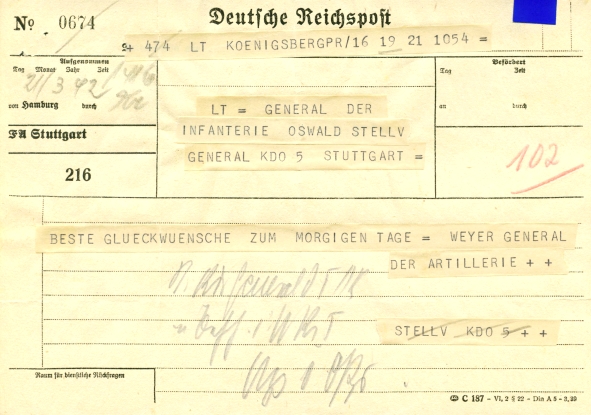 Deutsche Reichspost
Nº 0674
+ 474 LT KOENIGSBERGPR/16 19 21 1054 =
Aufgenommen
Tag Monat Jahr Zeit
21/3 42
von Hamburg durch
FA Stuttgart
216
Befördert
Tag Zeit
an durch
102
LT = GENERAL DER
INFANTERIE OSWALD STELLV
GENERAL KDO 5 STUTTGART =
BESTE GLUECKWUENSCHE ZUM MORGIGEN TAGE = WEYER GENERAL
DER ARTILLERIE + +
STELLV KDO 5 + +
Raum für dienstliche Rückfragen
C 187 – VI, 2 § 22 – Din A 5 – 3, 39